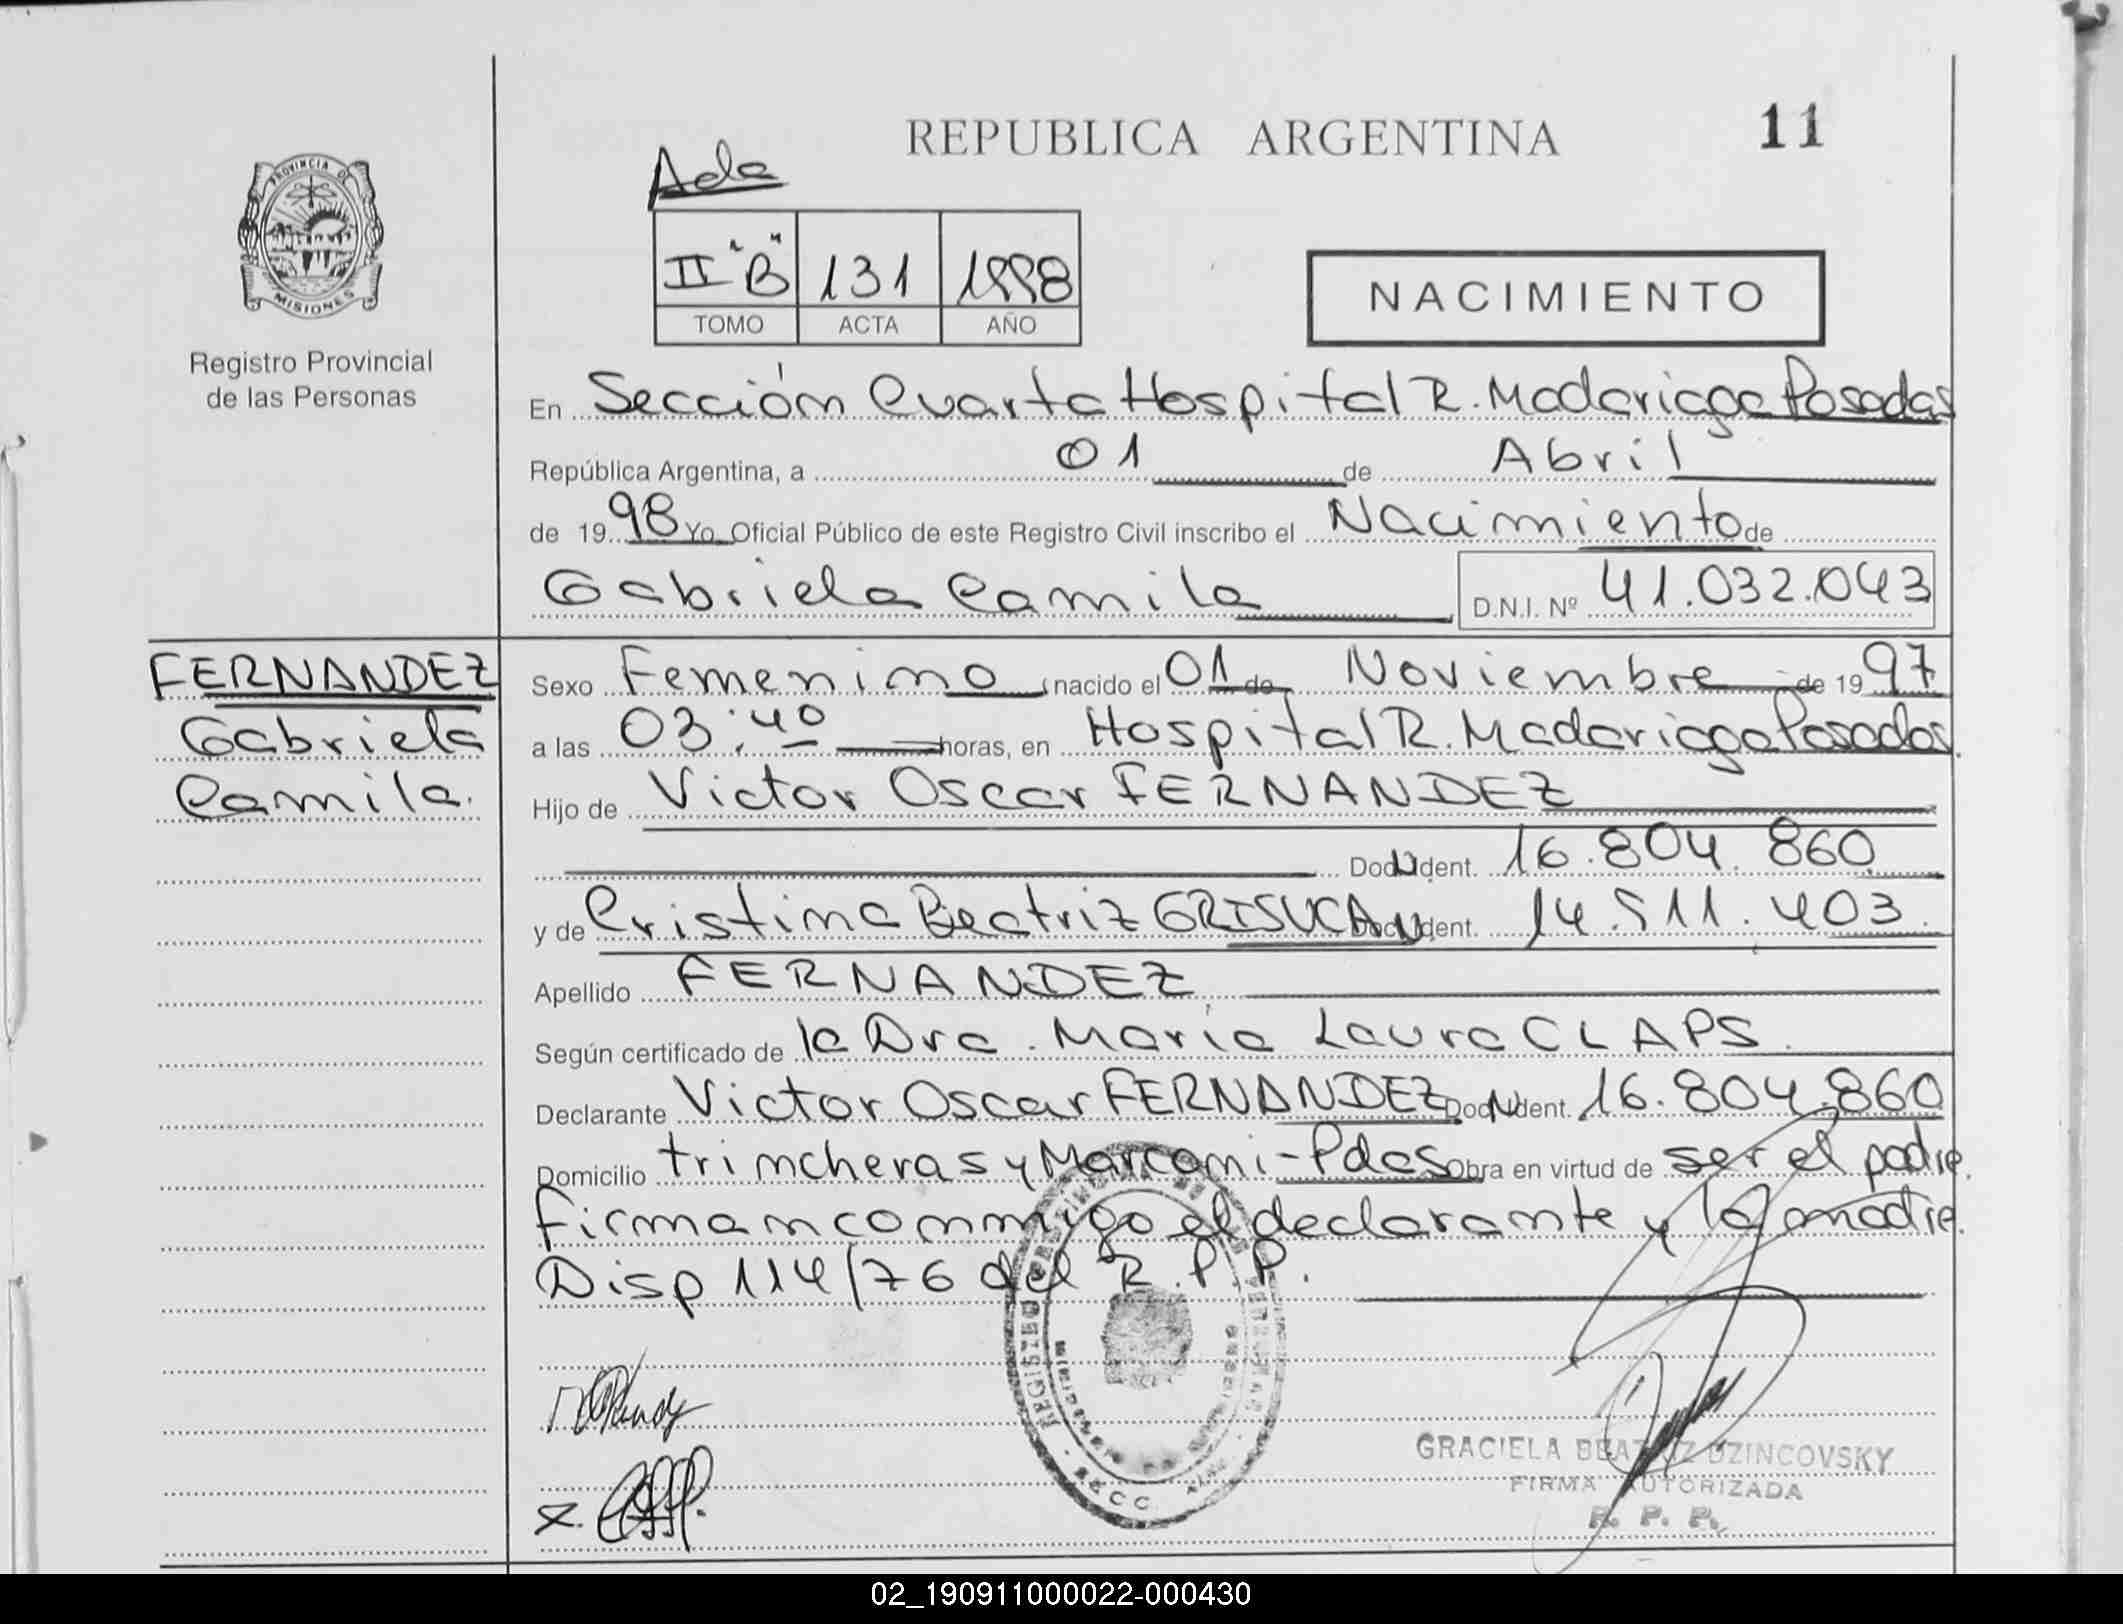 REPUBLICA ARGENTINA
11
PROVINCIA DE
MISIONES
Registro Provincial
de las Personas
Ada
II "B" 131 1998
TOMO ACTA AÑO
NACIMIENTO
En Sección Cuarta Hospital R. Madariaga Posadas
República Argentina, a 01 de Abril
de 1998 Yo Oficial Público de este Registro Civil inscribo el Nacimiento de
Gabriela Camila D.N.I. Nº 41.032.043
FERNANDEZ
Gabriela
Camila.
Sexo Femenino nacido el 01 de Noviembre de 1997
a las 03:40 horas, en Hospital R. Madariaga Posadas.
Hijo de Victor Oscar FERNANDEZ
Doc. Ident. 16.804.860
y de Cristina Beatriz GRISUCA Doc. Ident. 14.511.403.
Apellido FERNANDEZ
Según certificado de la Dra. María Laura CLAPS.
Declarante Victor Oscar FERNANDEZ Doc. Ident. 16.804.860
Domicilio trincheras y Marconi - Pdas Obra en virtud de ser el padre.
Firman conmigo el declarante y la madre.
Disp 114/76 del R.P.P.
GRACIELA BEATRIZ DZINCOVSKY
FIRMA AUTORIZADA
R. P. P.
02_190911000022-000430